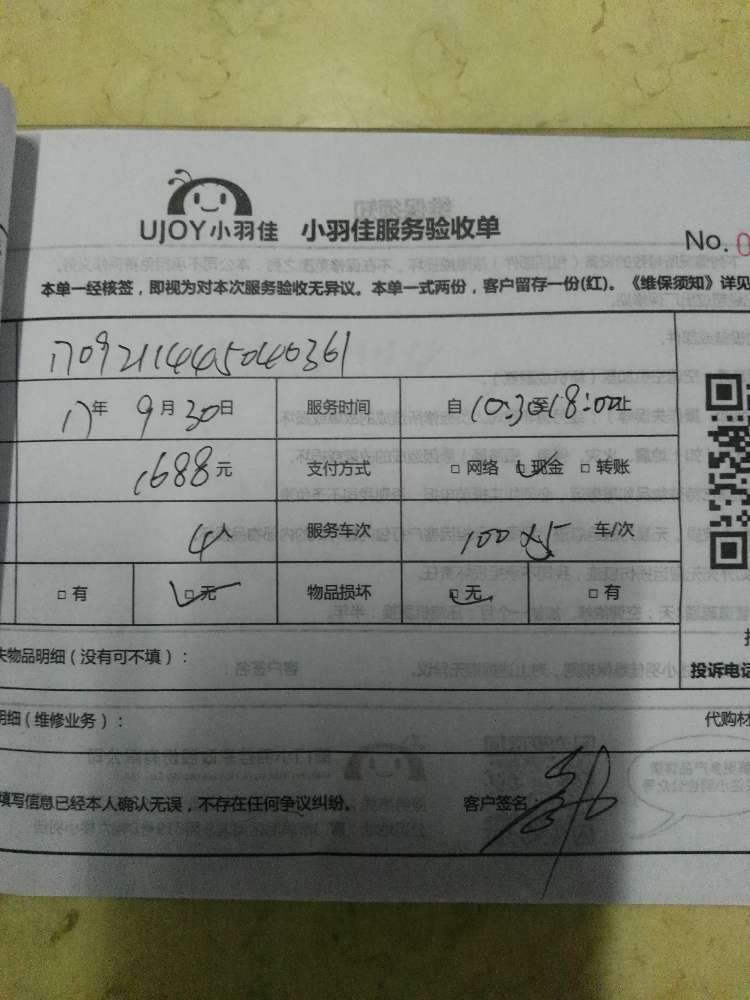 UJOY小羽佳 小羽佳服务验收单
No. 0
本单一经核签，即视为对本次服务验收无异议。本单一式两份，客户留存一份(红)。《维保须知》详见
1709211445040361
17年 9月 30日 服务时间 自 10:30至18:00止
1688元 支付方式 □网络 □现金 □转账
4人 服务车次 车/次
□有 □无 物品损坏 □无 □有
失物品明细（没有可不填）：
投诉电话
明细（维修业务）：
代购材
填写信息已经本人确认无误，不存在任何争议纠纷。 客户签名：